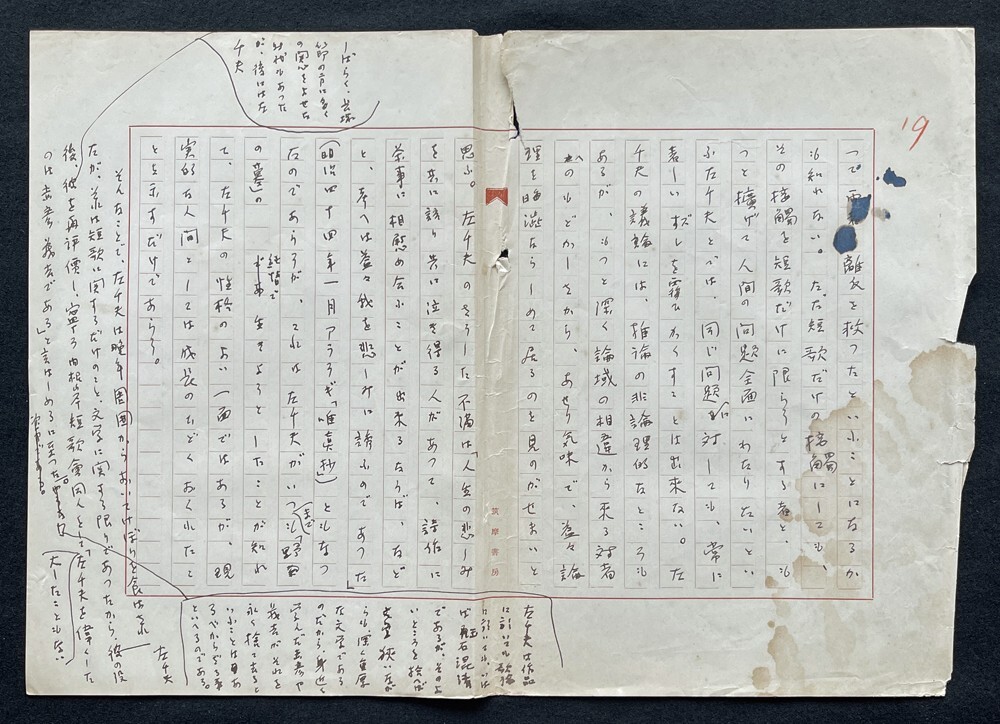 19
離反を救つたといふことになるか
も知れない。ただ短歌だけの接觸にしても、
その接觸を短歌だけに限らうとする者と、も
つと擴げて人間の問題全面にわたりたいとい
ふ左千夫とでは、同じ問題に対しても、常に
著しいズレを覆ひかくすことは出来ない。左
千夫の議論には、推論の非論理的なところも
あるが、もつと深く論域の相違から来る対者
へのもどかしさから、あせり気味で、益々論
理を晦渋ならしめて居るのを見のがせまいと
思ふ。左千夫のさうした不満は「人生の悲しみ
を共に語り共に泣き得る人があつて、詩作に
茶事に相慰め会ふことが出来るならば、など
と、考へは益々我を悲しみに誘ふのであつた」
(明治四十四年一月アララギ「唯真抄」)ともなつ
たのであらうが、これは左千夫がいつまでも「野菊
の墓」の
生きようとしたことが知れ
て、左千夫の性格のよい一面ではあるが、現
実的な人間としては成長のひどくおくれたこ
とを示すだけであらう。
そんなことで、左千夫は晩年周囲からおいてけぼりを食はされ
たが、それは短歌に関するだけのこと、文学に関する限りであつたから、彼の没
後、彼を再評価し、寧ろ
短歌会同人として「左千夫を偉くした
のは赤彦
である」と言はしめるに至つた
大したこともない
左千夫
しばらく、長塚
節の方に多く
の関心をよせた
時代もあつた
が、後には左
千夫
左千夫は作品
に於いても歌論
に於いても、いは
ば玉石混淆
であるが、そのよ
いところを拾へば
狭いながら
らも深く真摯
な文学である
のだから、身近で
学んだ赤彦や
茂吉がそれを
永く捨て去ると
いふことは
あ
るべからざる事
といへるのである。
筑摩書房